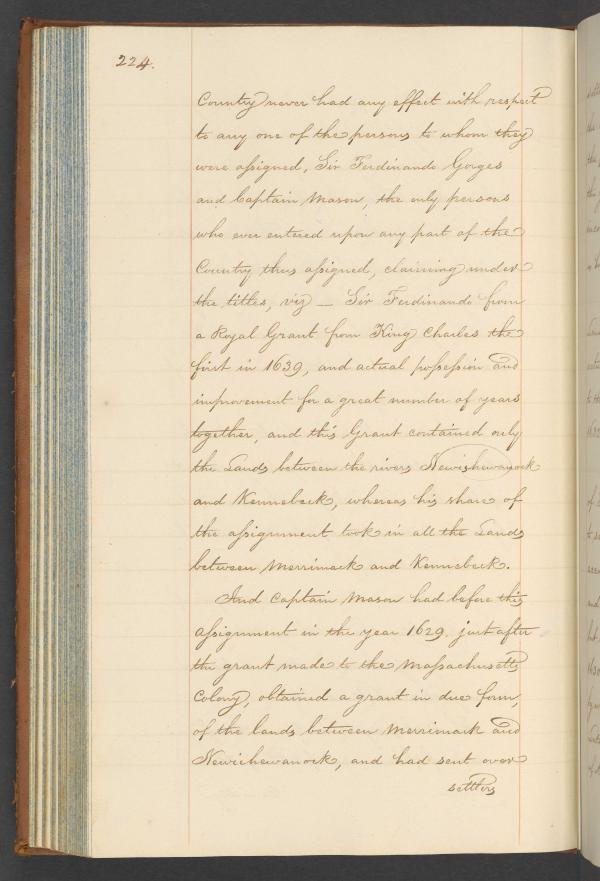 224.
Country never had any effect with respect
to any one of the persons to whom they
were assigned, Sir Ferdinando Gorges
and Captain Mason, the only persons
who ever entered upon any part of the
Country thus assigned, claiming under
the titles, viz — Sir Ferdinando from
a Royal Grant from King Charles the
first in 1639, and actual possession and
improvement for a great number of years
together, and this Grant contained only
the Lands between the rivers Newichewanock
and Kennebeck, whereas his share of
the assignment took in all the Lands
between Merrimack and Kennebeck.
And Captain Mason had before this
assignment in the year 1629. just after
the grant made to the Massachusetts
Colony, obtained a grant in due form,
of the lands between Merrimack and
Newichewanock, and had sent over
settlers